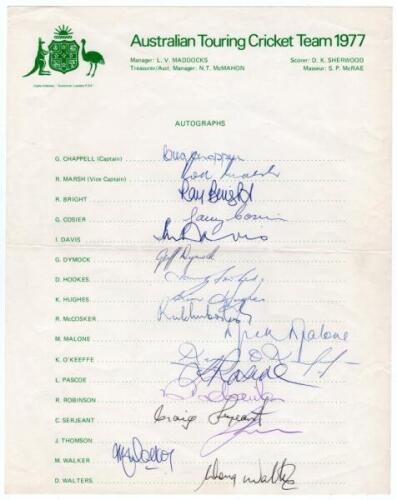 Australian Touring Cricket Team 1977
Manager: L. V. MADDOCKS Scorer: D. K. SHERWOOD
Treasurer/Asst. Manager: N. T. McMAHON Masseur: S. P. McRAE
AUTOGRAPHS
G. CHAPPELL (Captain) Greg Chappell
R. MARSH (Vice Captain) Rod Marsh
R. BRIGHT Ray Bright
G. COSIER Gary Cosier
I. DAVIS Ian Davis
G. DYMOCK Geoff Dymock
D. HOOKES
K. HUGHES Kim Hughes
R. McCOSKER
M. MALONE Mick Malone
K. O'KEEFFE
L. PASCOE L Pascoe
R. ROBINSON
C. SERJEANT Craig Serjeant
J. THOMSON
M. WALKER Max Walker
D. WALTERS Doug Walters